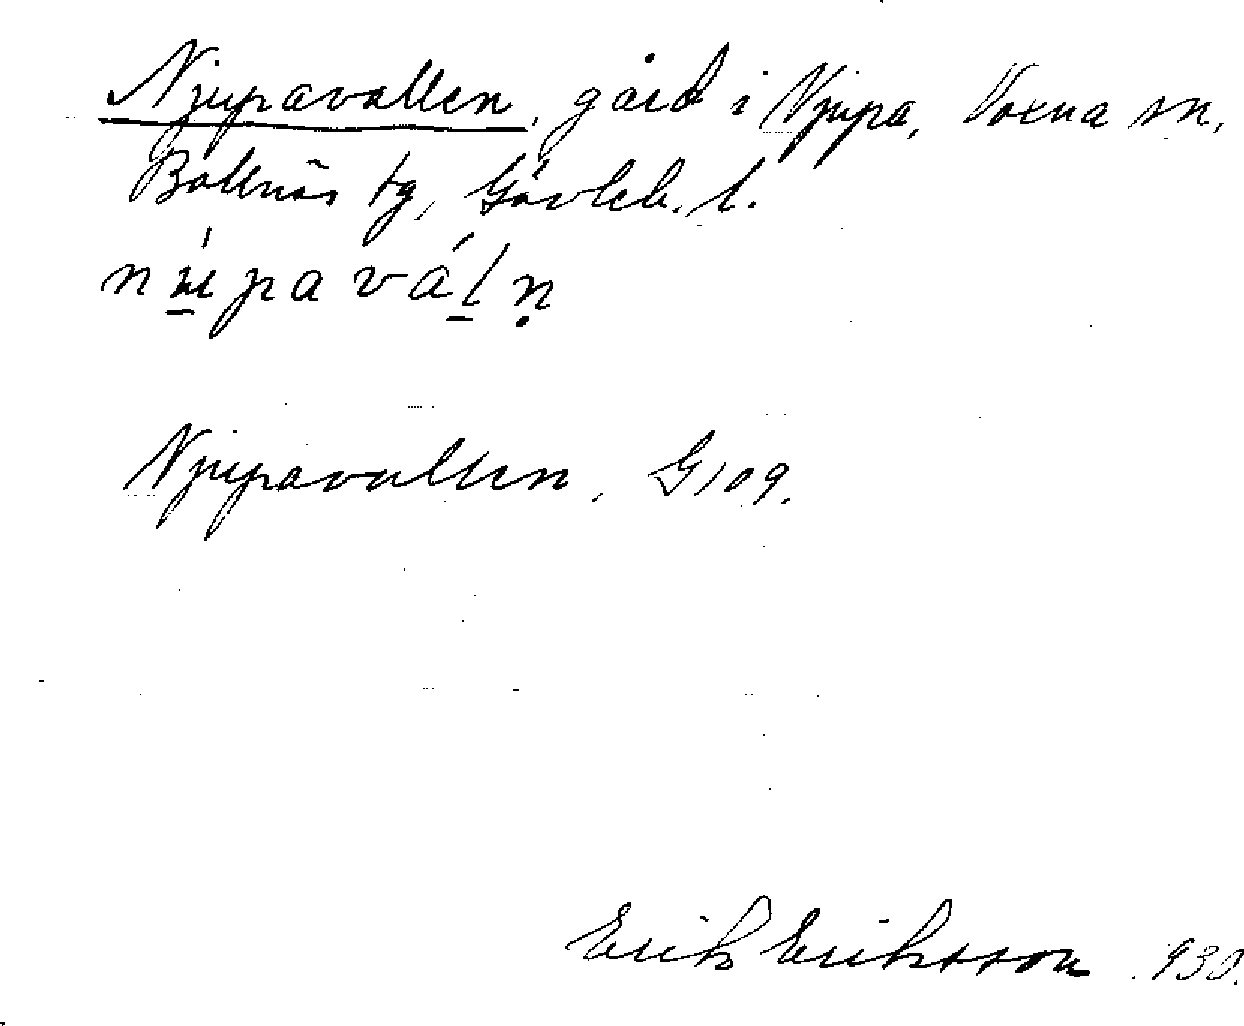 Njupavallen, gård i Njupa, Voxna sn,
Bollnäs tg, Gävleb. l.
Njupavallen, G109.
Erik Eriksson 1930.